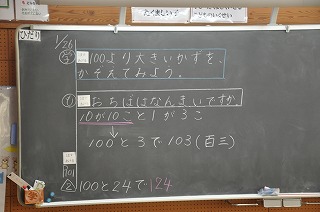 ひだり
1/26
100より大きいかずを、
かぞえてみよう。
おちばはなんまいですか
10が10こと1が3こ
↓
100と3で103(百三)
P101
② 100と24で124